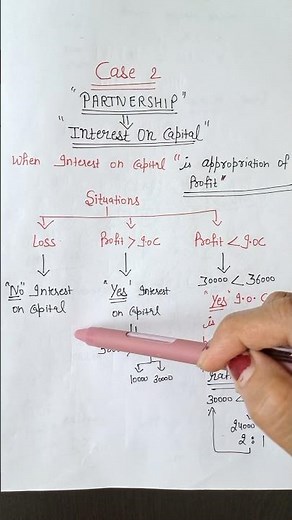 Case 2
"PARTNERSHIP"
"Interest On Capital"
When Interest on Capital "is appropriation of
Profit"
Situations
Loss
Profit > I.O.C
Profit < I.O.C
"No" Interest
on Capital
"Yes" Interest
on Capital
10000 30000
30000 < 36000
"Yes" I.O.C
is
30000 <
24000
2 : 1